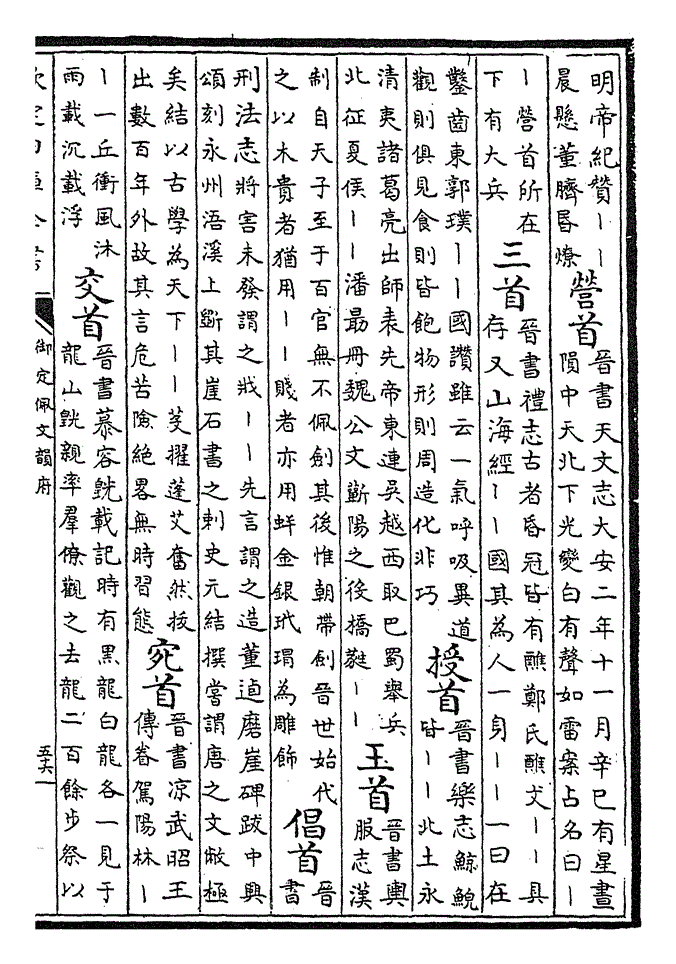 明帝紀贊丨丨
晨懸董臍昏燎
營首
晉書天文志大安二年十一月辛巳有星晝
隕中天北下光變白有聲如雷案占名曰丨
丨營首所在
下有大兵
三首
晉書禮志古者昏冠皆有醮鄭氏醮文丨丨具
存又山海經丨丨國其為人一身丨丨一曰在
鑿齒東郭璞丨丨國讚雖云一氣呼吸異道
觀則俱見食則皆飽物形則周造化非巧
授首
晉書樂志鯨鯢
皆丨丨北土永
清夷諸葛亮出師表先帝東連吳越西取巴蜀舉兵
北征夏侯丨丨潘朂冊魏公文蘄陽之役橋蕤丨丨
玉首
晉書輿
服志漢
制自天子至于百官無不佩劍其後惟朝帶劍晉世始代
之以木貴者猶用丨丨賤者亦用蚌金銀玳瑁為雕飾
倡首
晉
書
刑法志將害未發謂之戕丨丨先言謂之造董逌磨崖碑跋中興
頌刻永州浯溪上斲其崖石書之刺史元結撰嘗謂唐之文敝極
矣結以古學為天下丨丨芟擢蓬艾奮然拔
出數百年外故其言危苦險絕畧無時習態
宛首
晉書凉武昭王
傳眷駕陽林丨
丨一丘衝風沐
雨載沉載浮
交首
晉書慕容皝載記時有黑龍白龍各一見于
龍山皝親率羣僚觀之去龍二百餘步祭以
欽定四庫全書
御定佩文韻府
五十六